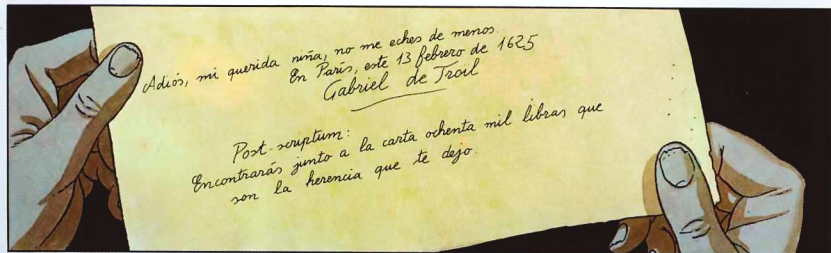 Adiós, mi querida niña, no me eches de menos.
En París, este 13 febrero de 1625
Gabriel de Troil
Post-scriptum:
Encontrarás junto a la carta ochenta mil libras que
son la herencia que te dejo.